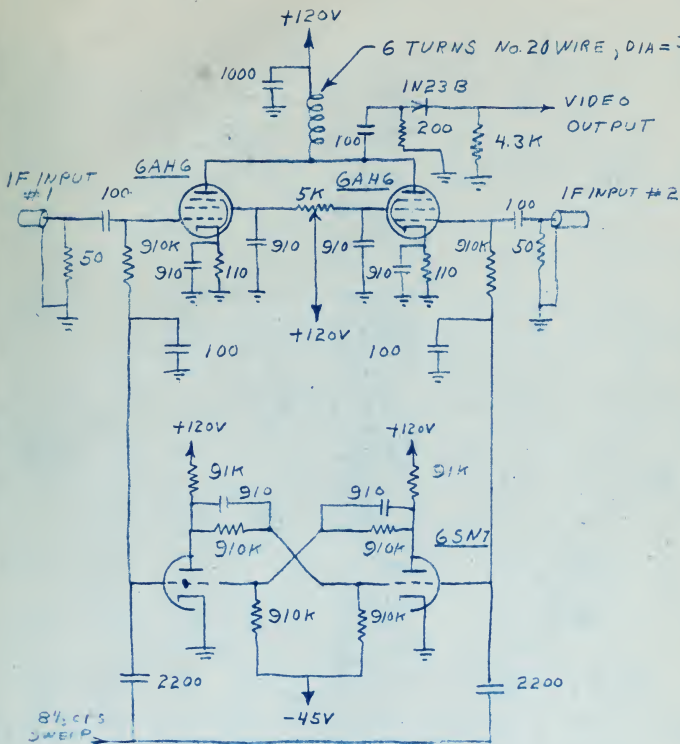 +120V
6 TURNS No. 20 WIRE, DIA =
1000
1N23B
VIDEO OUTPUT
100
200
4.3K
IF INPUT #1
100
6AH6
5K
6AH6
100
IF INPUT #2
50
910K
910
110
910
910
910
110
910K
50
+120V
100
100
+120V
+120V
91K
91K
910
910
910K
910K
6SN7
910K
910K
2200
-45V
2200
8½ CPS
SWEEP